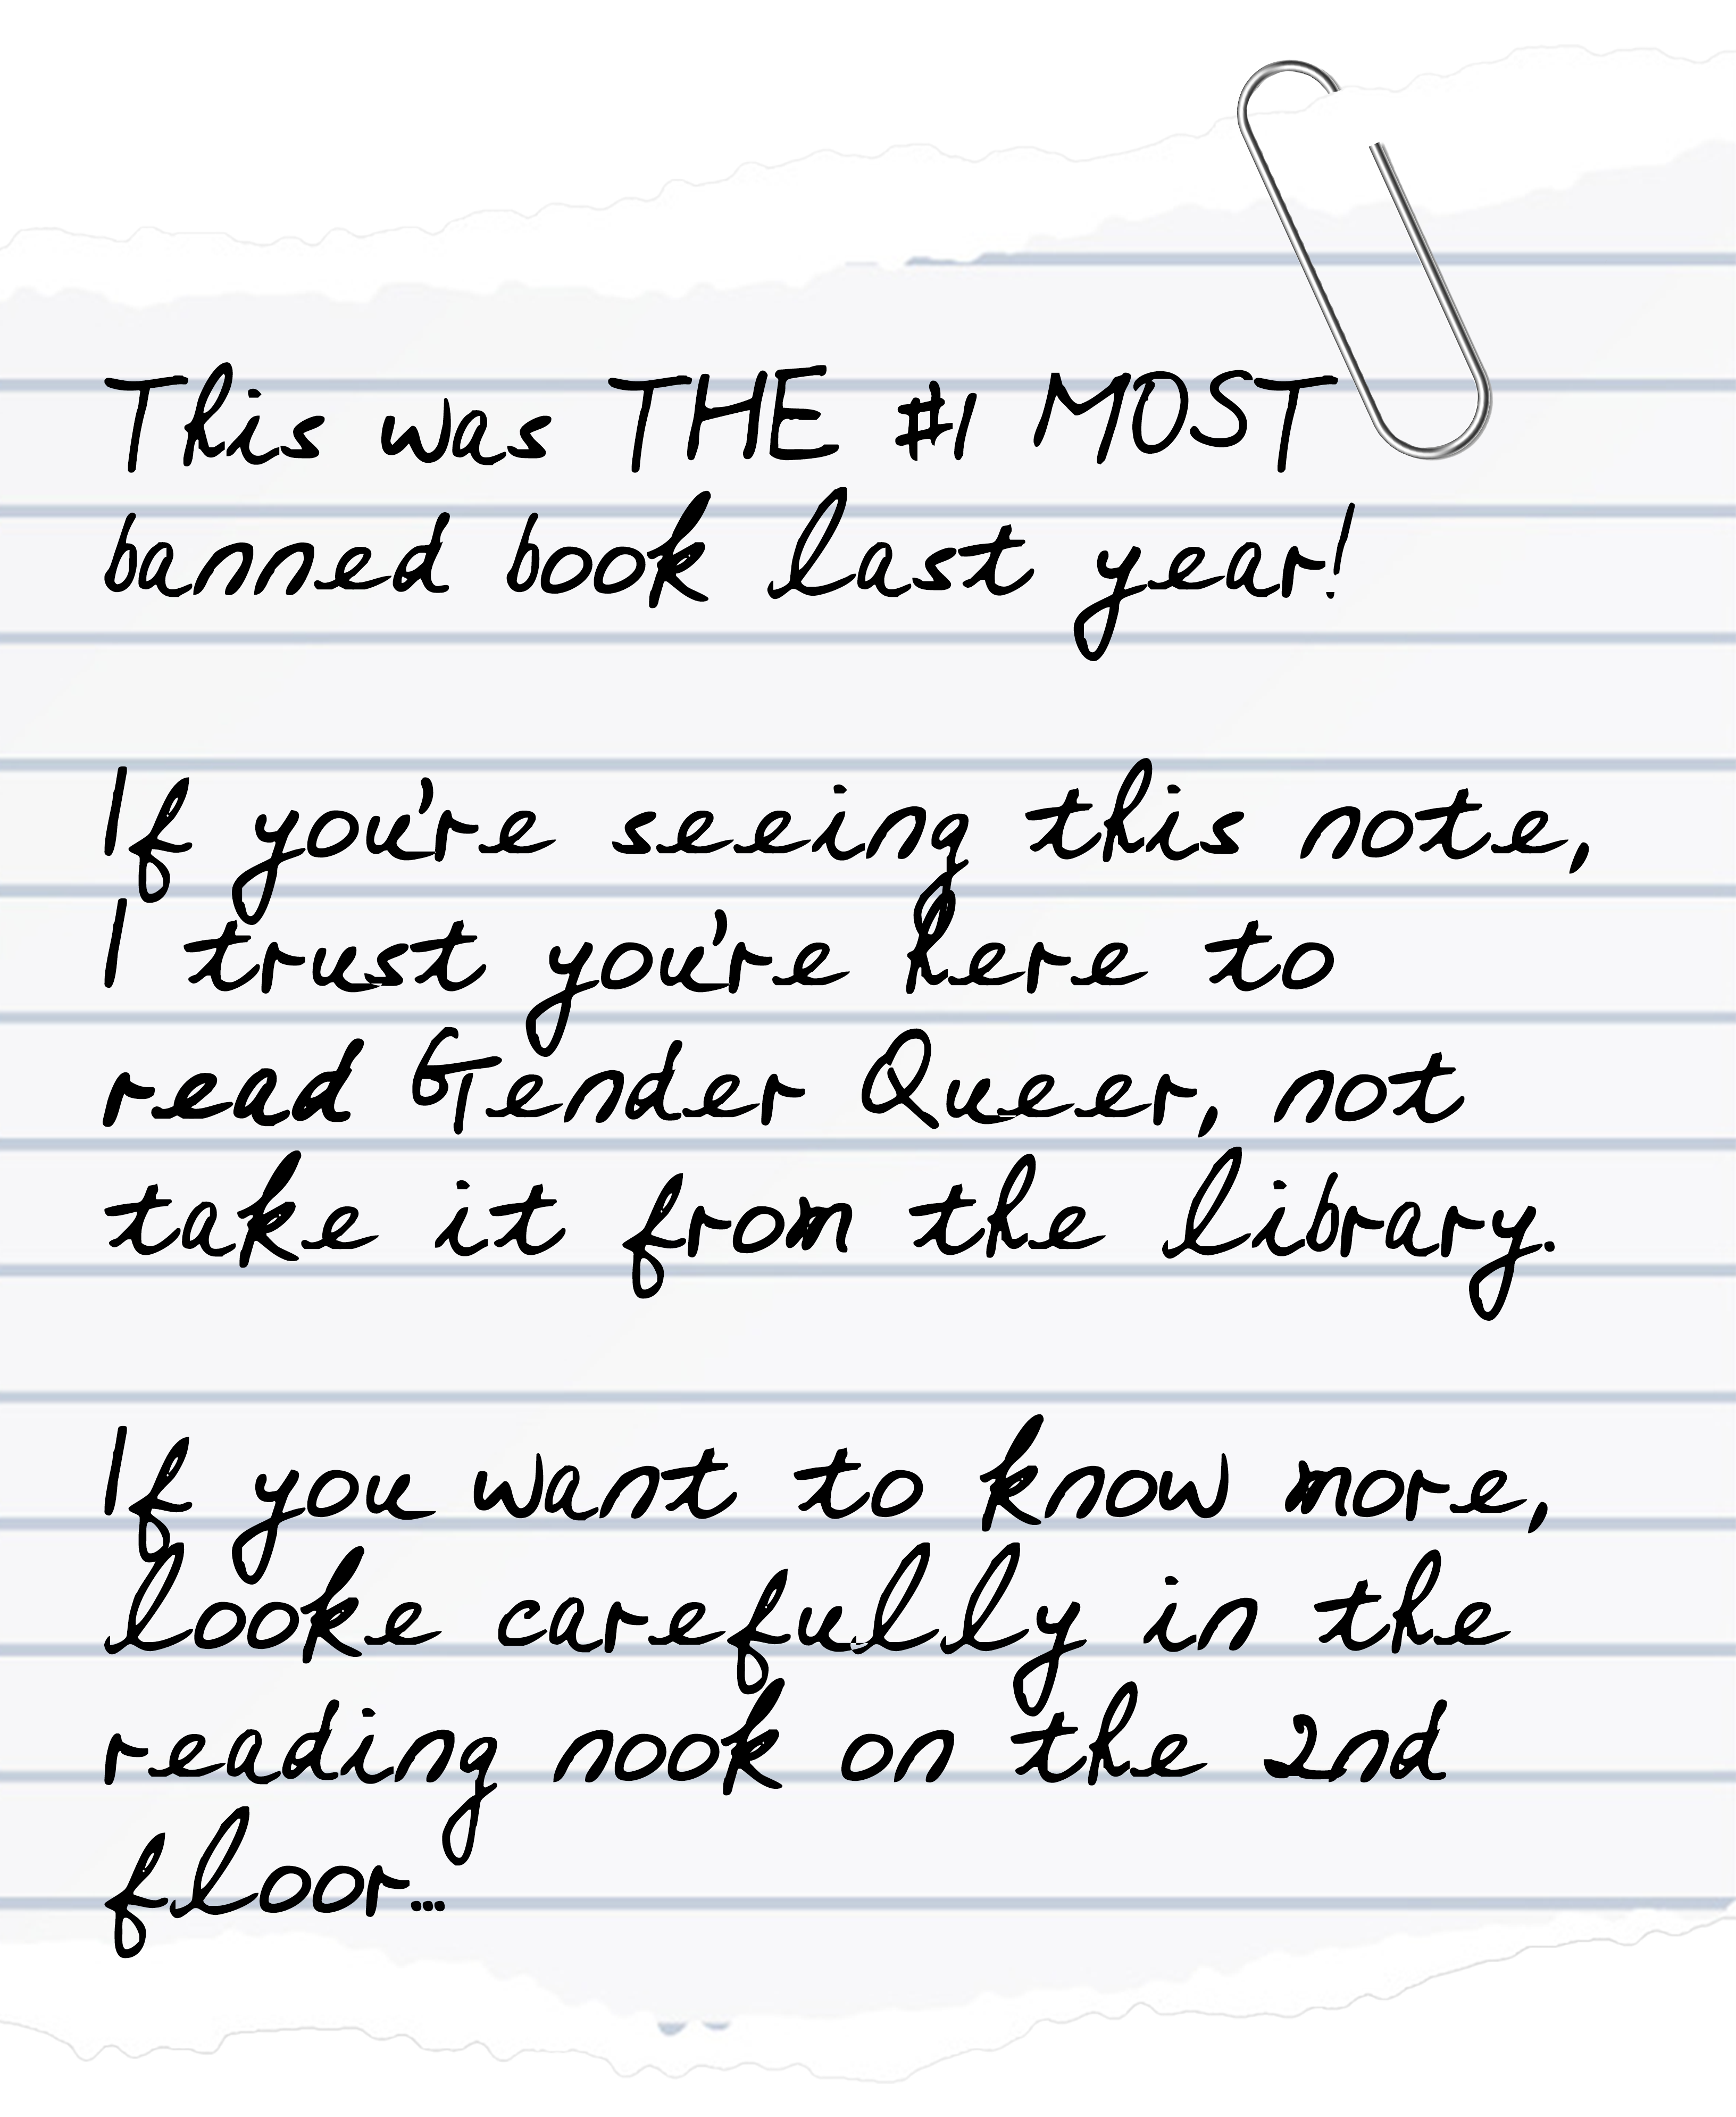 This was THE #1 MOST
banned book last year!
If you're seeing this note,
I trust you're here to
read Gender Queer, not
take it from the library.
If you want to know more,
looke carefully in the
reading nook on the 2nd
floor...